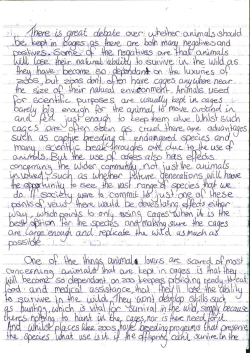 There is great debate over whether animals should
be kept in cages as there are both many negatives and
positives. Some of the negatives are that animals
will lose their natural ability to survive in the wild as
they have become so dependant on the luxuries of
zoos, but zoos don't often have cages anywhere near
the size of their natural environment. Animals used
for scientific purposes are usually kept in cages
barely big enough for the animal to move around in
and fed just enough to keep them alive. Whilst such
cages are often seen as cruel there are advantages
such as captive breeding of endangered species and
many scientific break throughs over due to the use of
animals. But the use of cages also has effects
concerning the wider community, not just the animals
involved, such as whether future generations will have
the opportunity to see the vast range of species that we
do. If society were to commit to just one of these
points of views there would be devastating effects either
way, which points to only using cages when it is the
best option for the species and making sure the cages
are large enough and replicate the wild as much as
possible.
One of the things animal lovers are scared of most
concerning animals that are kept in cages is that they
will become so dependent on zoo keepers providing ready
food and medical assistance, that they'll lose the ability
to survive in the wild. They wont develop skills such
as hunting, which is vital for survival in the wild, simply because
there's nothing to hunt in the cages, nor is there need for it.
And whilst places like zoos, have breeding programs that preserve
the species what use is it if the offspring can't survive in the